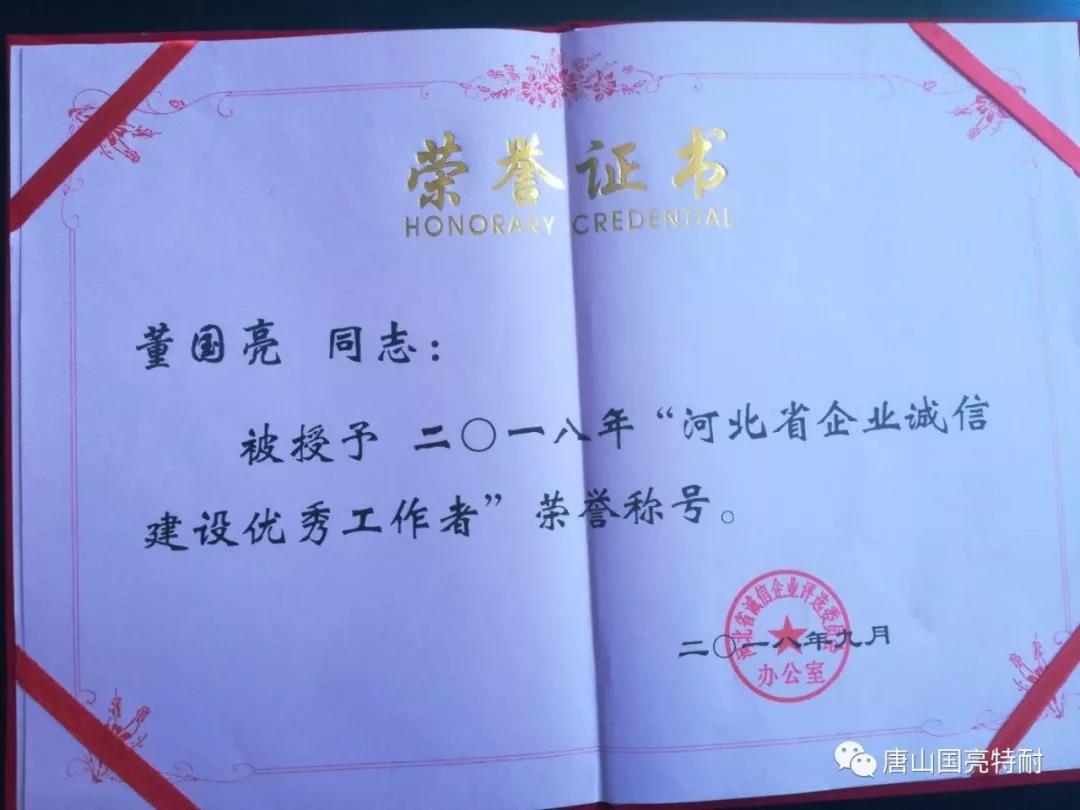 荣誉证书
HONORARY CREDENTIAL
董国亮 同志：
被授予 二〇一八年“河北省企业诚信
建设优秀工作者”荣誉称号。
河北省诚信企业评选委员会
办公室
二〇一八年九月
唐山国亮特耐